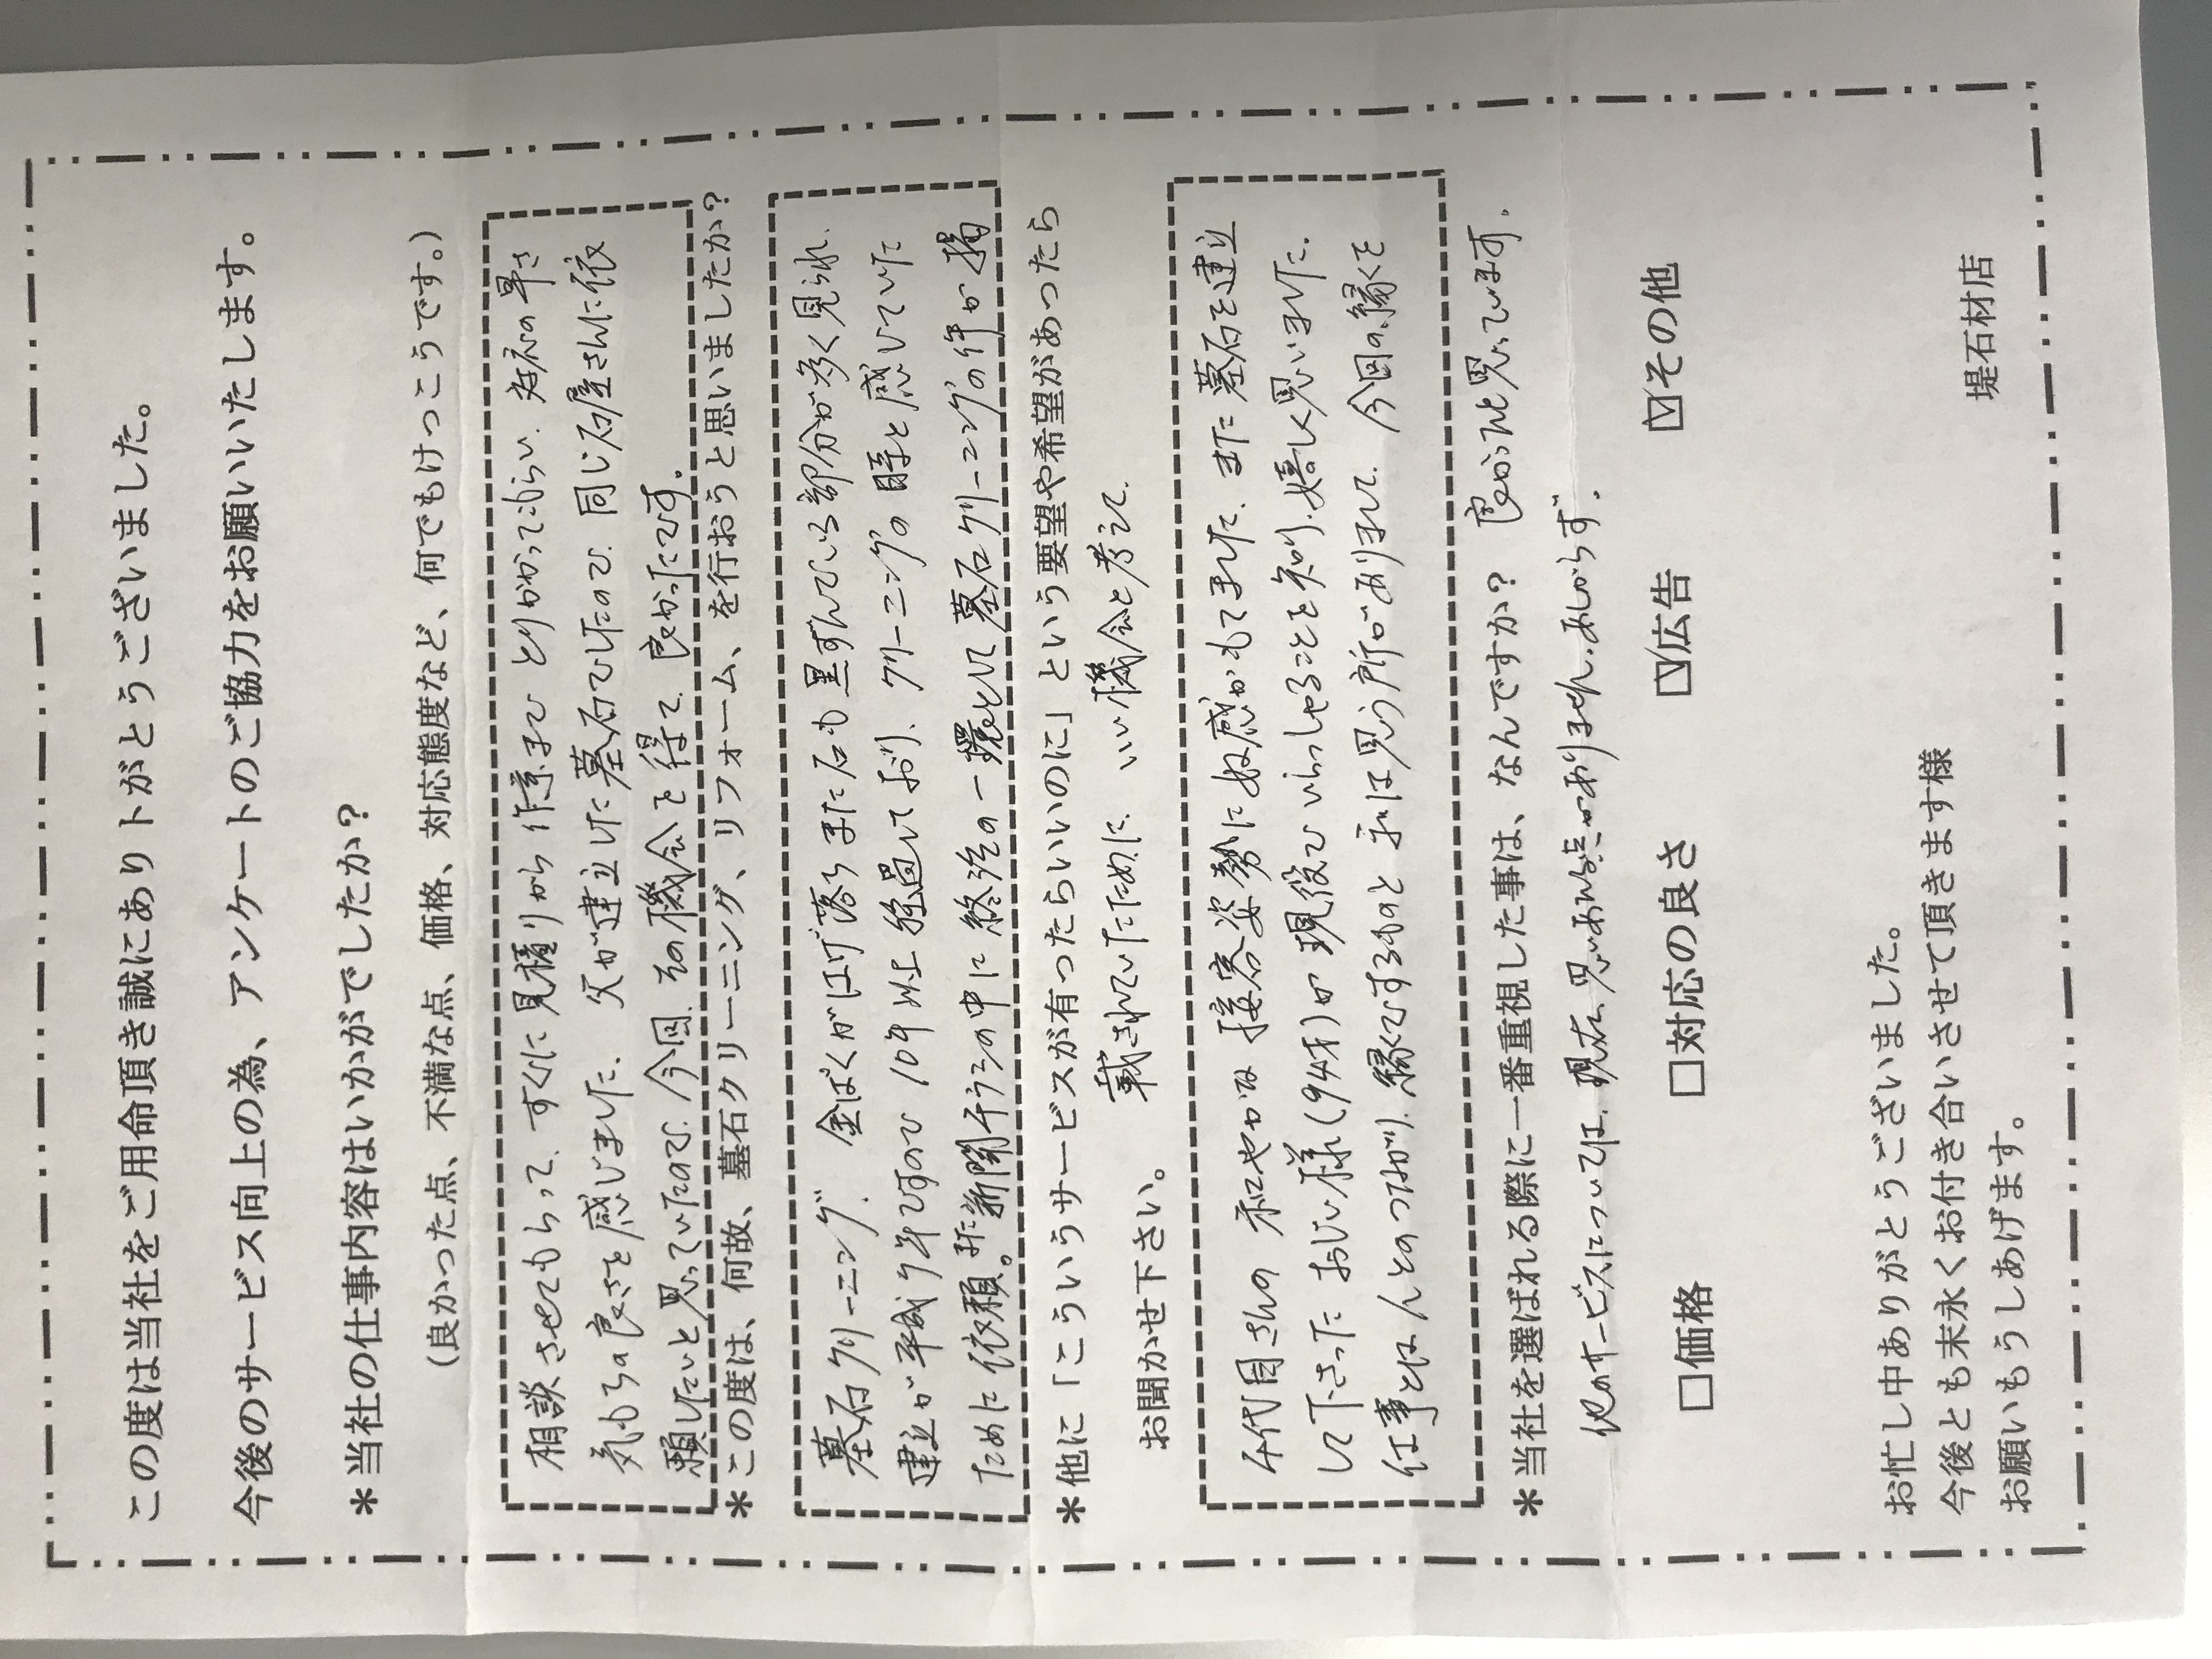 この度は当社をご用命頂き誠にありトがとうございました。
今後のサービス向上の為、アンケートのご協力をお願いいたします。
＊当社の仕事内容はいかがでしたか？
（良かった点、不満な点、価格、対応態度など、何でもけっこうです。）
相談させてもらって、すぐに見積りから作業まで とりかかってもらい、対応の早さ
気もちの良さを感じました。父が建立した墓石でしたので、同じ石屋さんに依
頼したいと思っていたので、今回、その機会を得て、良かったです。
＊この度は、何故、墓石クリーニング、リフォーム、を行おうと思いましたか？
墓石クリーニング。金ぱくがはげ落ちまた石も黒ずんでいる部分が多く見られ、
建立が平成9年ですので 10年以上経過しており、クリーニングの時と感じていた
ために依頼。また新聞チラシの中に終活の一環として墓石クリーニングの件が掲
載されていたために、いい機会と考えて。
＊他に「こういうサービスが有ったらいいのに」という要望や希望があったら
お聞かせ下さい。
千代目さんの 和やかな 接客姿勢に好感がもてました。また 墓石を建立
して下さった おじい様(94才)が現役でいらっしゃることを知り、嬉しく思いました。
仕事とは人とのつながり、縁でするものと私は思う所がありまして、今回の縁を
良かったと思っています。
＊当社を選ばれる際に一番重視した事は、なんですか？
他のサービスについては、現在、思いあたる点がありません。あしからず。
□価格 □対応の良さ ☑広告 ☑その他
お忙し中ありがとうございました。
今後とも末永くお付き合いさせて頂きます様
お願いもうしあげます。
堤石材店